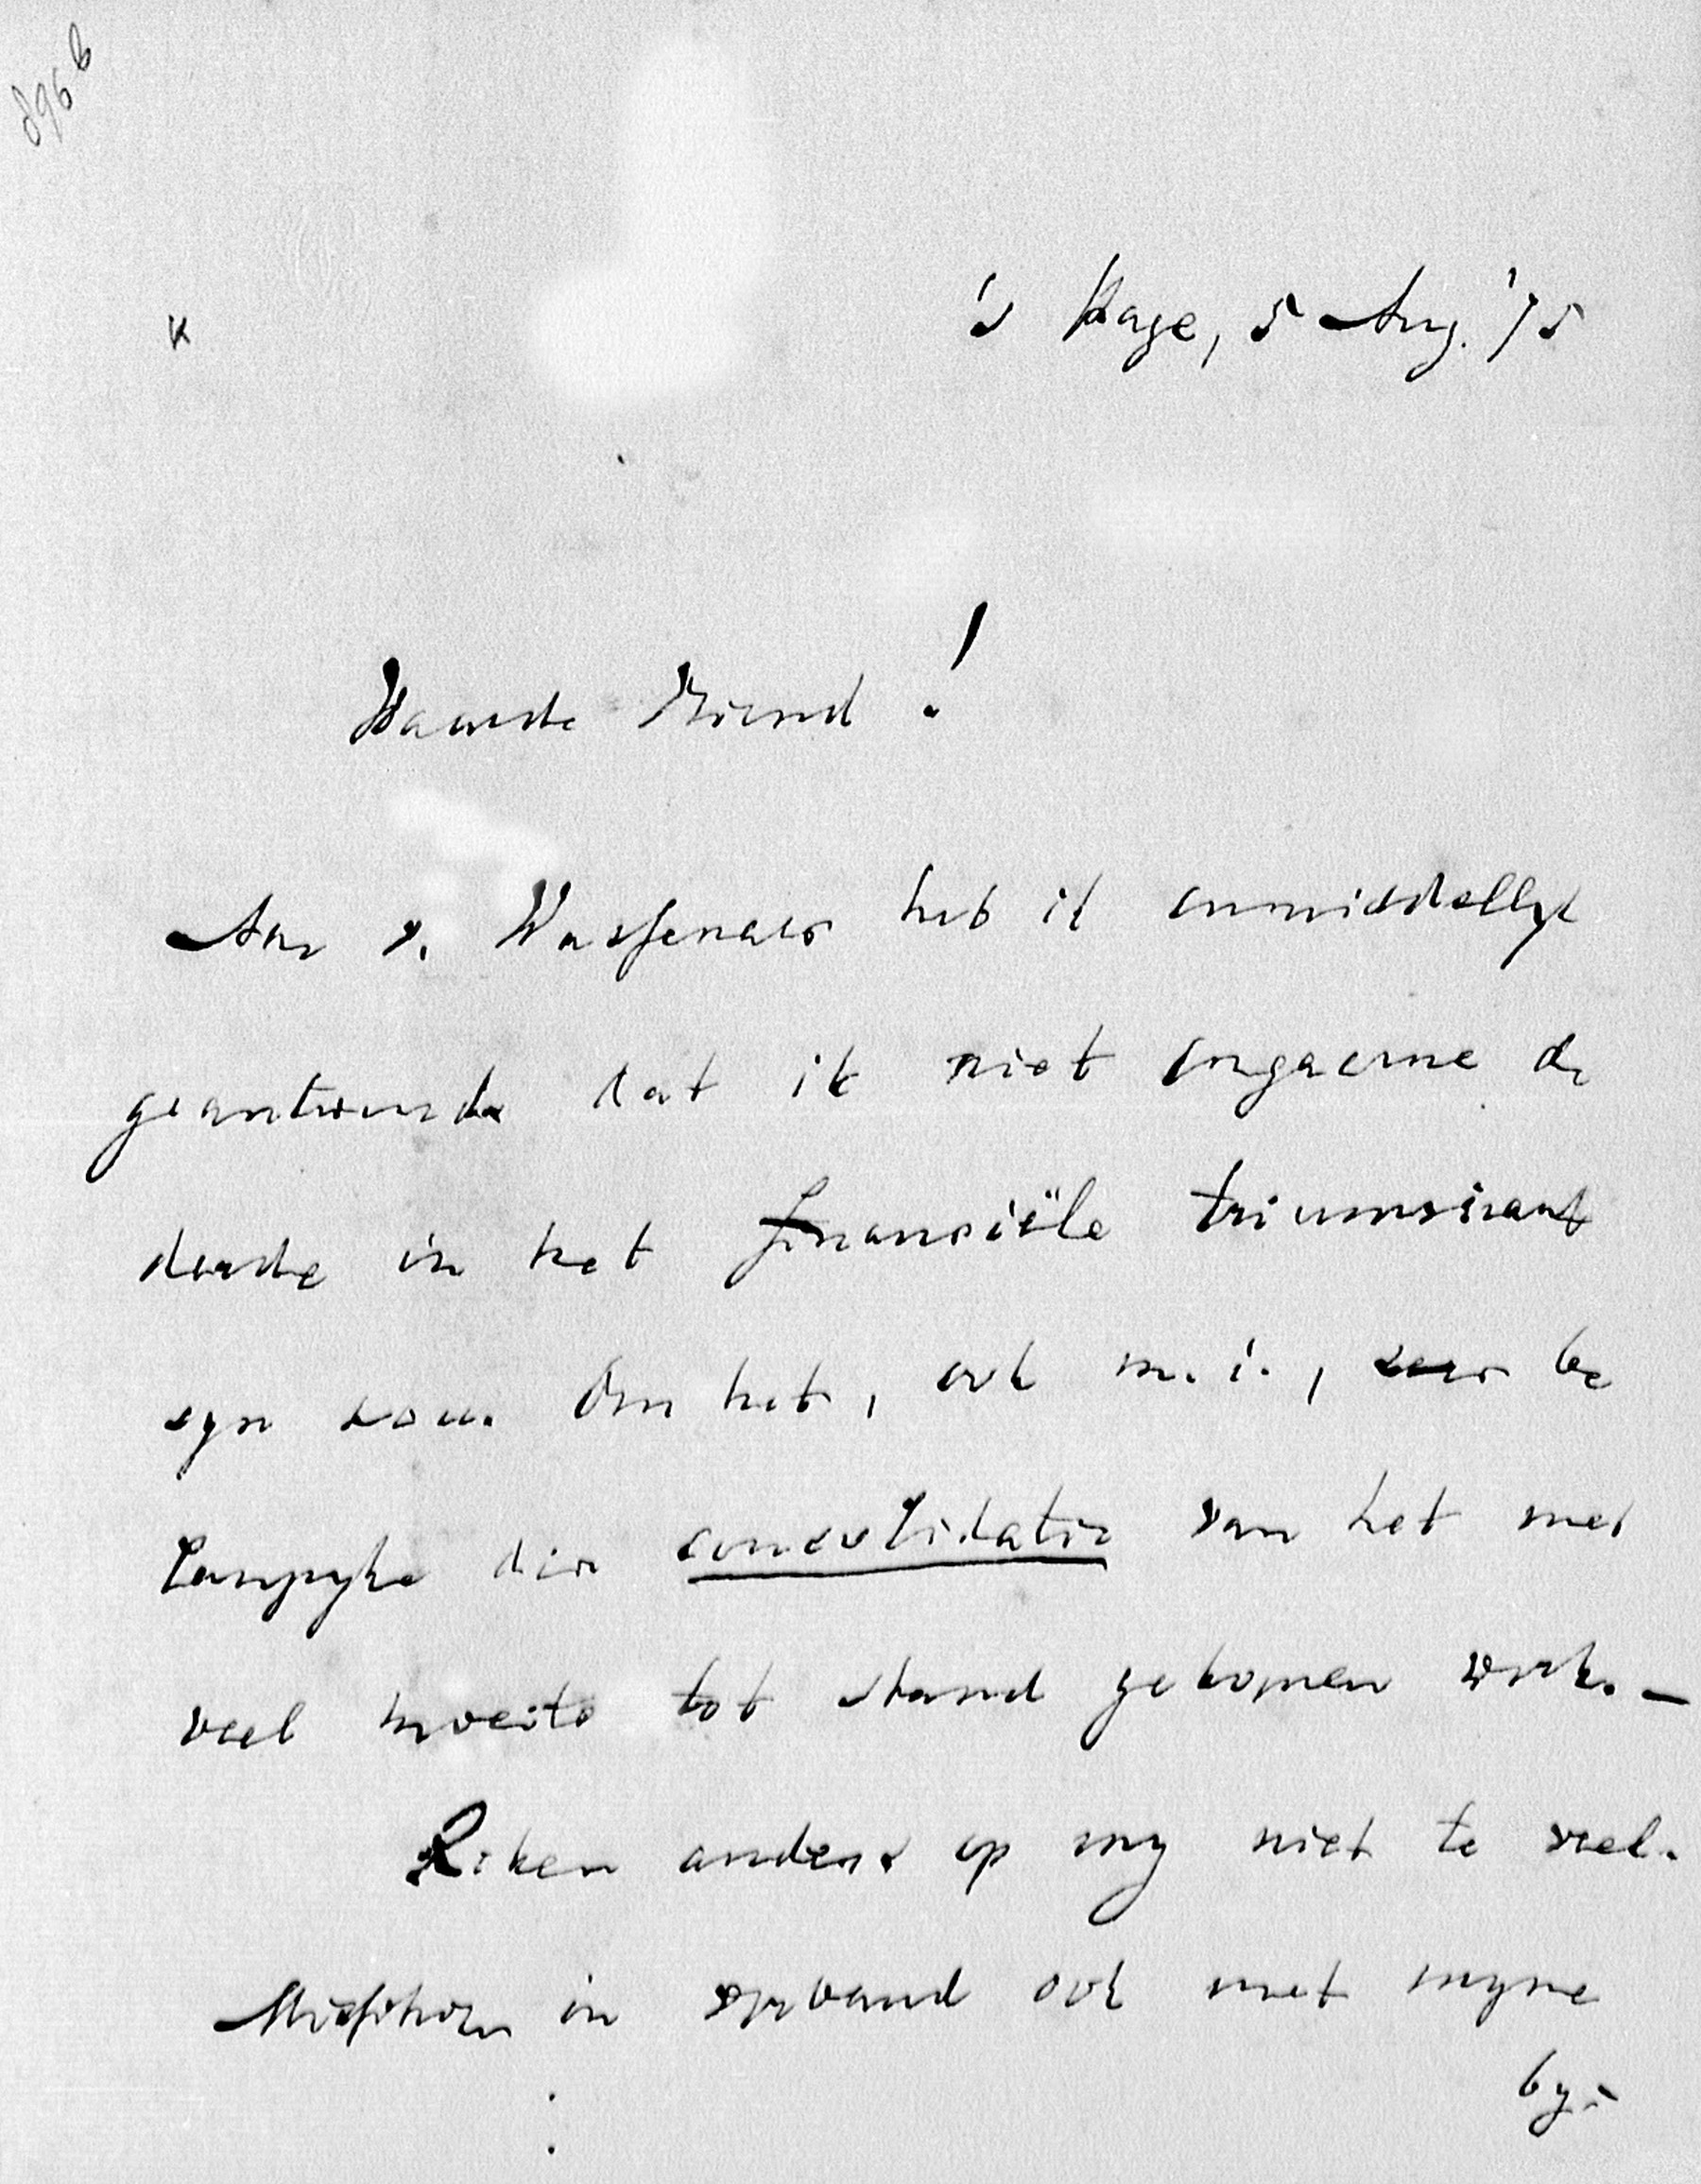 896b
K
's Hage, 5 Aug. '75
Waarde Vriend!
Aan v. Wassenaer heb ik onmiddellyk
geantwoord dat ik niet ongaerne de
derde in het financiële triumviraat
zyn zou. Om het, ook m.i., zeer be
langryke der consolidatie van het met
veel moeite tot stand gekomen werk. _
Reken anders op my niet te veel.
Misschien in verband ook met myne
by-